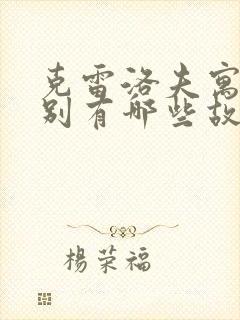 克雷洛夫寓
别有哪些故
楊荣福